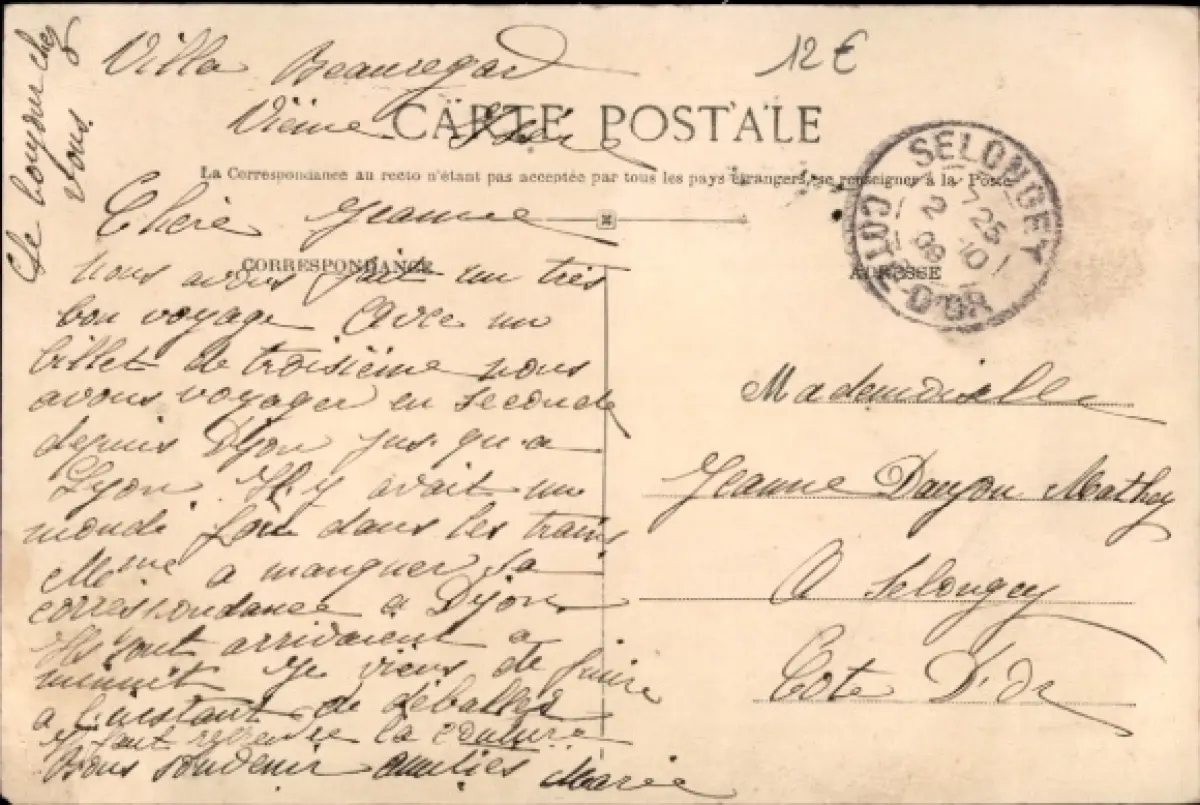 Le bonjour chez
vous
Villa Beauregard
Vienne Isère
12 €
CARTE POSTALE
La Correspondance au recto n'étant pas acceptée par tous les pays étrangers, se renseigner à la Poste
SELONGEY
7 25
2 10
08
COTE-D'OR
CORRESPONDANCE
ADRESSE
Chère Jeanne
Nous avons fait un très
bon voyage avec un
billet de troisième nous
avons voyager en seconde
depuis Dijon jus-qu-a
Lyon. Il y avait un
monde fou dans les trains
Mme a manquer sa
correspondance a Dijon.
Ils sont arrivaient a
minuit Je viens de finire
a l'instant de déballer
il faut reprendre la couture
Bons souvenir amitiés Marie
Mademoiselle
Jeanne Mathey
A Selongey
Cote D'or